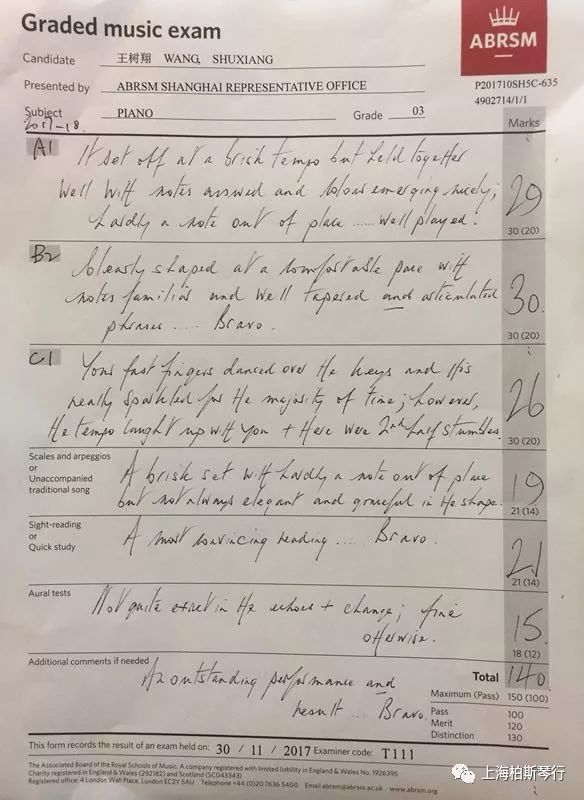 Graded music exam
ABRSM
Candidate 王树翔 WANG, SHUXIANG
Presented by ABRSM SHANGHAI REPRESENTATIVE OFFICE
P201710SH5C-635
4902714/1/1
Subject PIANO Grade 03
2017-18.
Marks
A1 It set off at a brisk tempo but held together
well with notes answed and colours emerging nicely;
hardly a note out of place ..... well played.
29
30 (20)
B2 Pleasantly shaped at a comfortable pace with
notes familiar and well tapered and articulated
phrases .... Bravo.
30
30 (20)
C1 Your fast fingers danced over the keys and this
really sparkled for the majority of time; however,
the tempo caught up with you + there were 2nd half stumbles.
26
30 (20)
Scales and arpeggios
or
Unaccompanied
traditional song
A brisk set with hardly a note out of place
but not always elegant and graceful in the shape.
19
21 (14)
Sight-reading
or
Quick study
A most convincing reading .... Bravo.
21
21 (14)
Aural tests
Not quite exact in the echoes + change; fine
otherwise.
15
18 (12)
Additional comments if needed
An outstanding performance and
result ... Bravo.
Total 140
Maximum (Pass) 150 (100)
Pass 100
Merit 120
Distinction 130
This form records the result of an exam held on: 30 / 11 / 2017 Examiner code: T111
The Associated Board of the Royal Schools of Music. A company registered with limited liability in England & Wales No. 1926395
Charity registered in England & Wales (292182) and Scotland (SC043343)
Registered office: 4 London Wall Place, London EC2Y 5AU Telephone +44 (0)20 7636 5400 Email abrsm@abrsm.ac.uk www.abrsm.org
上海柏斯琴行